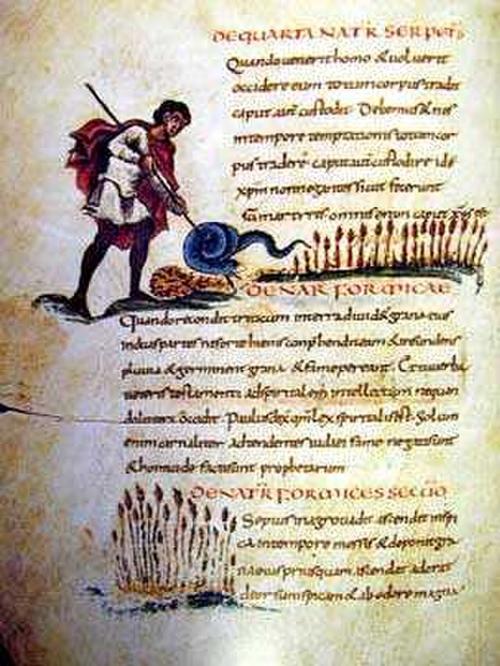 DE QUARTA NATR SERPETIS
Quando uenerit homo & uoluerit
occidere eum totum corpus tradit
caput aute custodit Debemus & nos
intempore temptationis totum cor
pus tradere caput aute custodire ide
xpm non negantes sicut fecerunt
martires omnis enim caput xps est
DE NAR FORMICAE
Quando recondit triticum interra diuidit grana eius
induas partes neforte hiems conphendat eam & infundens
pluuia & germinent grana & fame pereant. Et tu uerba
ueteris testamenti adspiritalem intellectum nequan
do occidat Paulus dix qm lex spiritalis est. Solum
enim carnaliter adtendentes iudaei fame negati sunt
& homicide facti sunt prophetarum
DE NATR FORMICES SECUDO
Sepius inagro uadit ascendit inspi
ca intempore messis & deponit gra
na eius priusquam ascendat adorat
deorsum spicam & ab odore